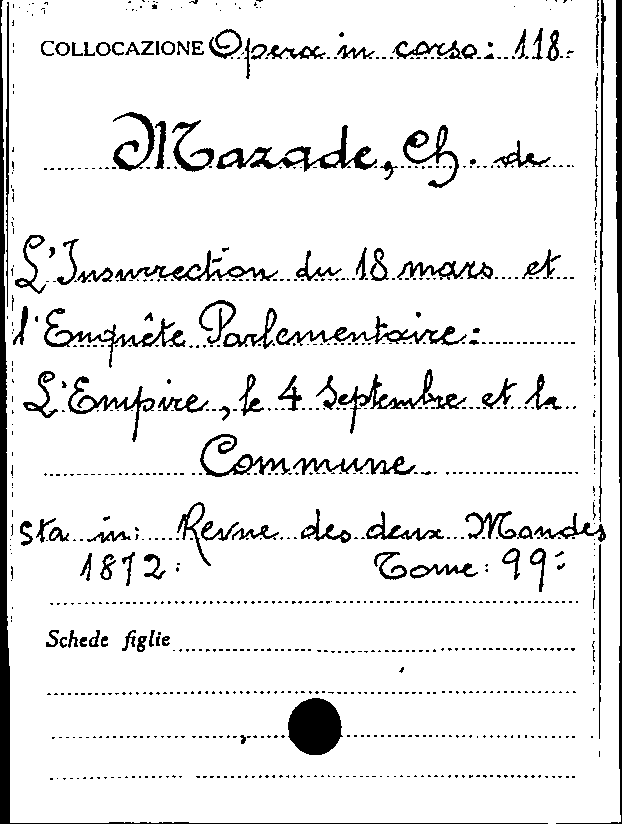 COLLOCAZIONE Opera in corso: 118.
Mazade, Ch. de
L'Insurrection du 18 mars et
l'Enquête Parlementaire:
L'Empire, le 4 Septembre et la
Commune.
sta in: Revue des deux Mondes
1872: Tome: 99:
Schede figlie